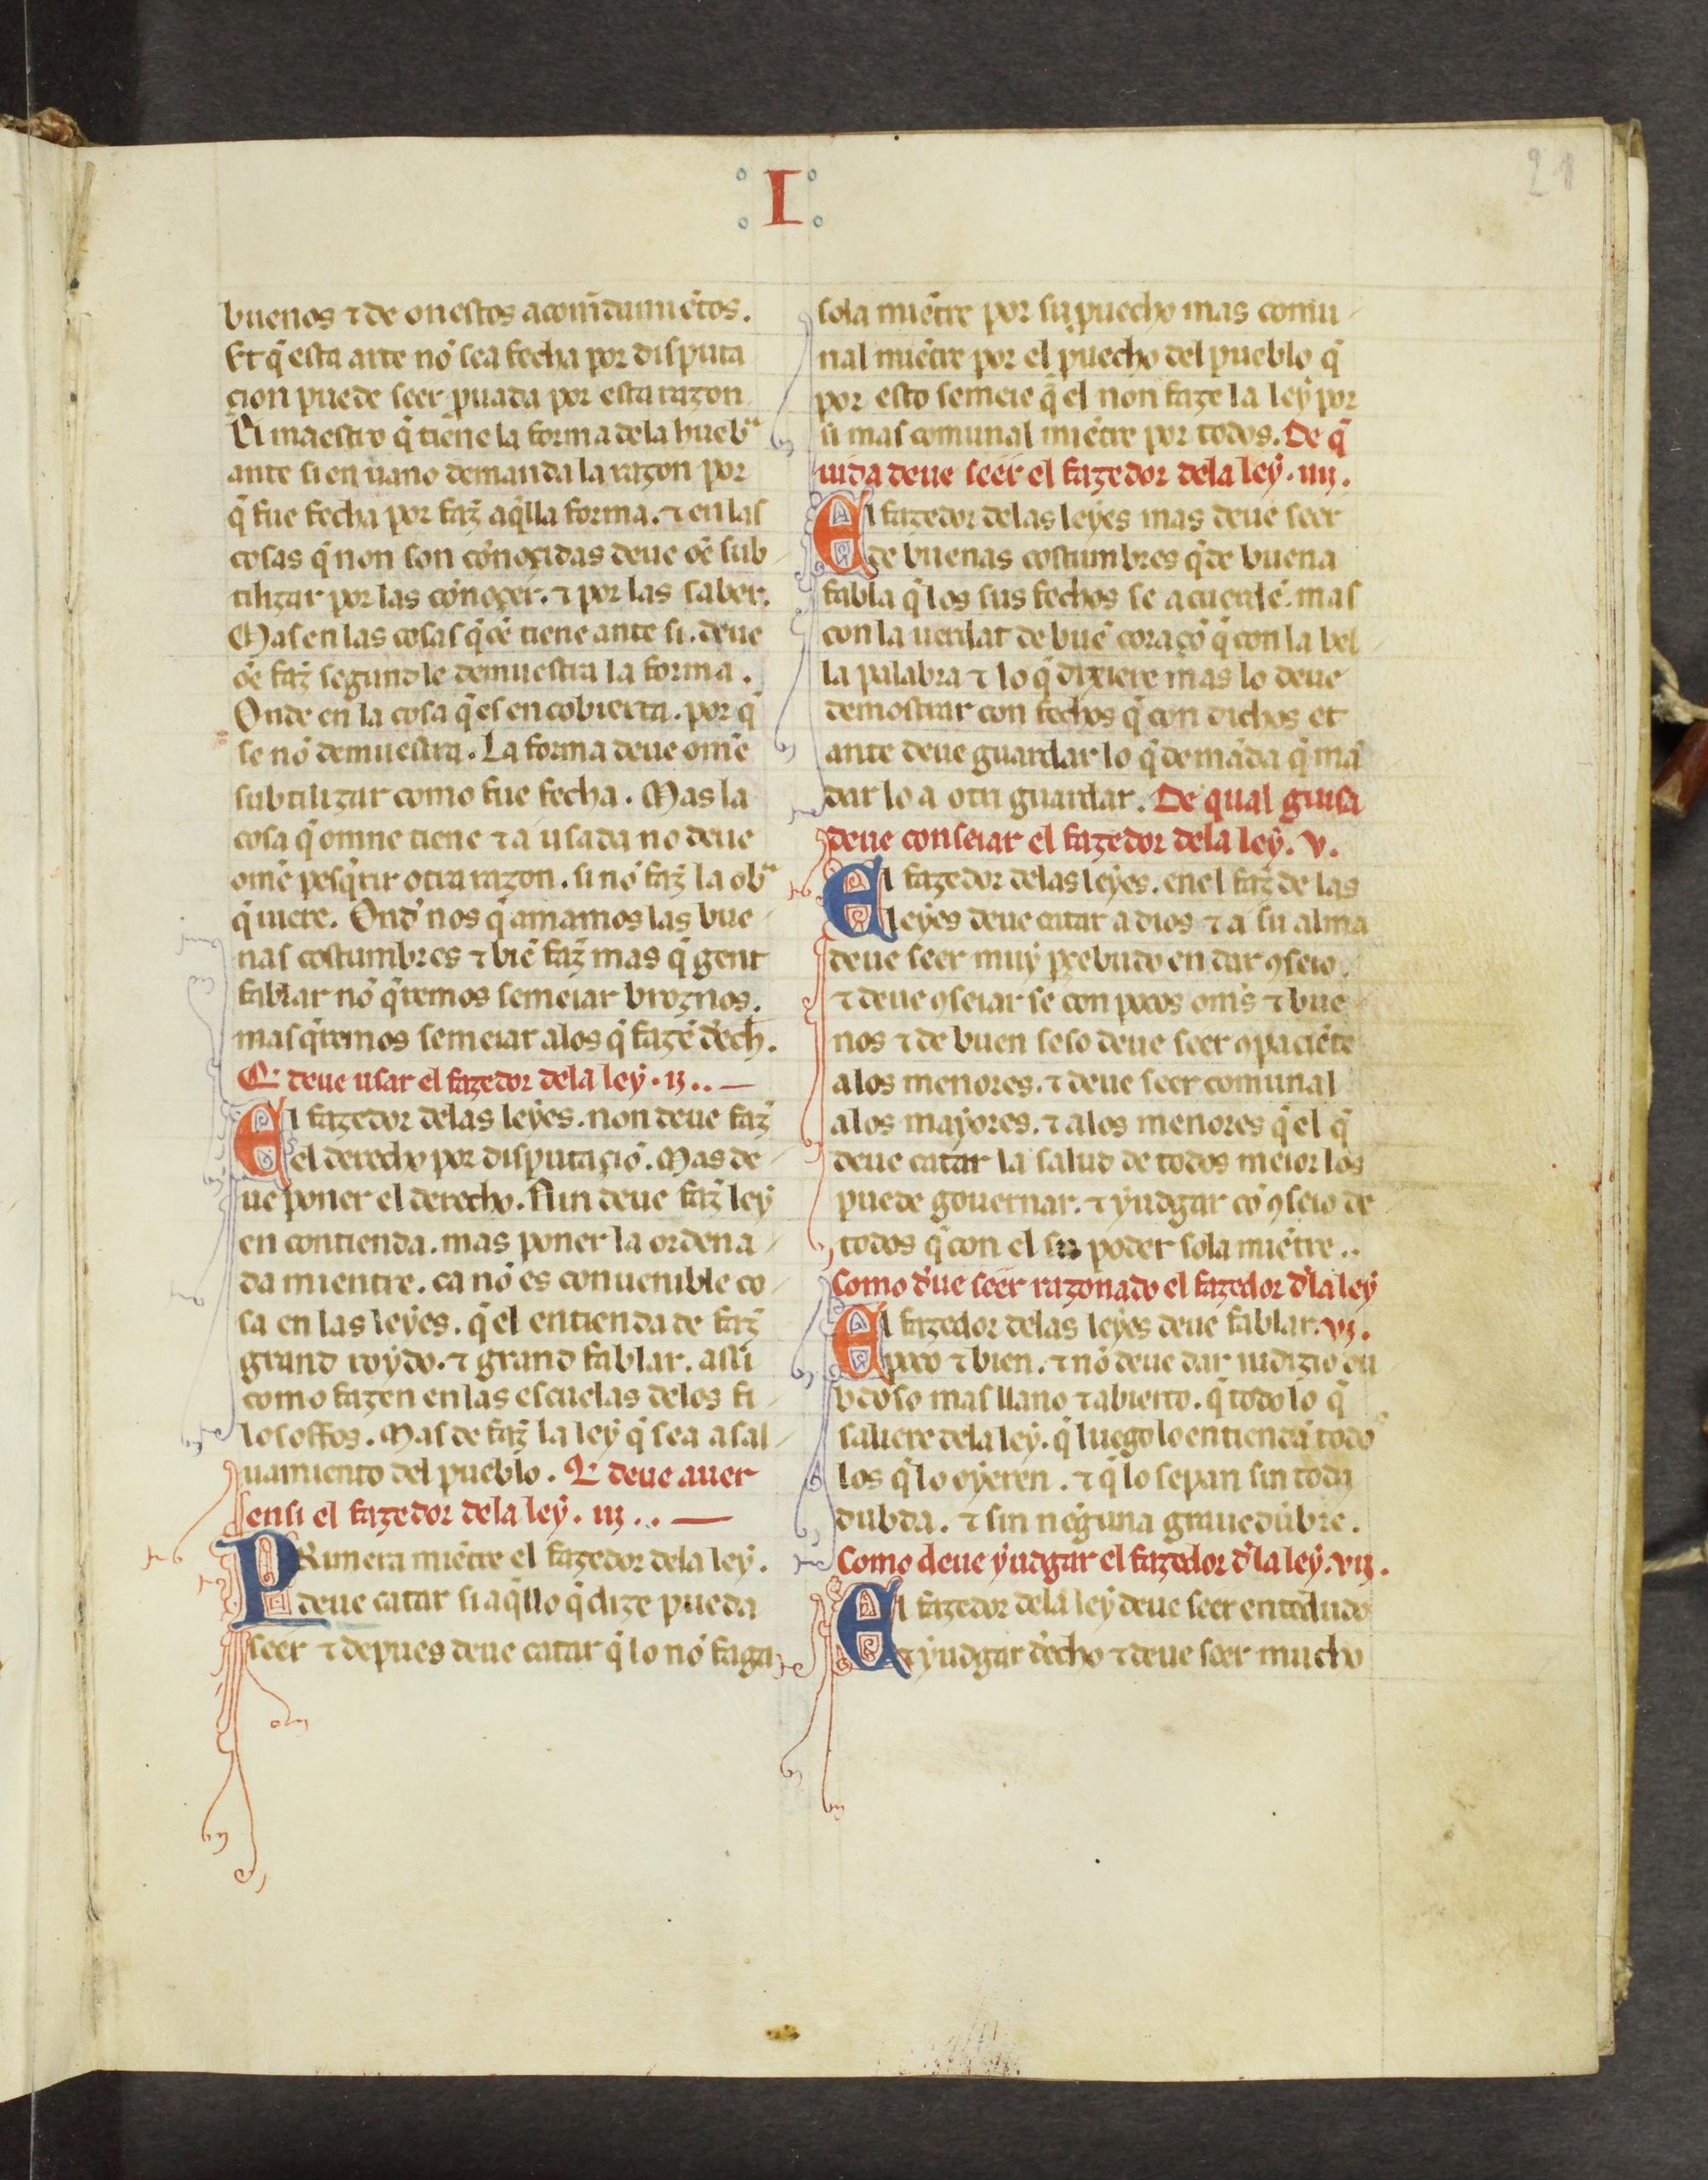 I
21
buenos ⁊ de onestos acom̃dumiẽtos.
Et q̃ esta arte nõ sea fecha por disputa
çion puede seer puada por esta razon
El maestro q̃ tiene la forma dela huebᵃ
ante si en uano demanda la razon por
q̃ fue fecha por faz̃ aq̃lla forma. ⁊ en las
cosas q̃ non son cõnoçidas deue oẽ sub
tilizar por las cõnoçer. ⁊ por las saber.
Mas en las cosas q̃ oẽ tiene ante si. deue
oẽ faz̃ segund le demuestra la forma.
Onde en la cosa q̃ es encobierta. por q̃
se nõ demuestra. La forma deue om̃e
subtilizar como fue fecha. Mas la
cosa q̃ omne tiene ⁊ a usada no deue
om̃e pesq̃rir otra razon. si nõ faz̃ la obᵃ
q̃ uiere. Ond̾ nos q̃ amamos las bue
nas costumbres ⁊ biẽ faz̃ mas q̃ gent
fablar nõ q̃remos semeiar
mas q̃remos semeiar alos q̃ fazẽ d̾ech.
deue usar el fazedor dela ley. ij.. —
El fazedor delas leyes. non deue faz̃
el derecho por disputaçiõ. Mas de
ue poner el derecho. Nin deue faz̃ ley
en contienda. mas poner la ordena
da mientre. ca nõ es conuenible co
sa en las leyes. q̃ el entienda de faz̃
grand roydo. ⁊ grand fablar. assi
como fazen en las escuelas delos fi
losoffos. Mas de faz̃ la ley q̃ sea a sal
uamiento del pueblo. deue auer
ensi el fazedor dela ley. iij.. —
PRimera miẽtre el fazedor dela ley.
deue catar si aq̃llo q̃ dize pueda
seer ⁊ depues deue catar q̃ lo nõ faga
sola miẽtre por su puecho mas comu
nal miẽtre por el puecho del pueblo q̃
por esto semeie q̃ el non faze la ley por
si mas comunal miẽtre por todos. De q̃
uida deue seer el fazedor dela ley. iiij.
El fazedor delas leyes mas deue seer
de buenas costumbres q̃ de buena
fabla q̃ los sus fechos se acuerdẽ. mas
con la uerdat de buẽ coraçõ q̃ con la bel
la palabra ⁊ lo q̃ dixiere mas lo deue
demostrar con fechos q̃ con dichos et
ante deue guardar lo q̃ demãda q̃ mã
dar lo a otri guardar. De qual guisa
deue conseiar el fazedor dela ley. v.
El fazedor delas leyes. en el faz̃ de las
leyes deue catar a dios ⁊ a su alma
deue seer muy prebudo en dar ꝯseio.
⁊ deue ꝯseiar se con pocos om̃s ⁊ bue
nos ⁊ de buen seso deue seer ꝯpaciẽte
alos menores. ⁊ deue seer comunal
alos mayores. ⁊ alos menores q̃ el q̃
deue catar la salud de todos meior los
puede gouernar. ⁊ yudgar cõ ꝯseio de
todos q̃ con el su poder sola miẽtre..
Como d̾ue seer razonado el fazedor d̾la ley
El fazedor delas leyes deue fablar. vj.
poco ⁊ bien. ⁊ nõ deue dar iudizio du
bdoso mas llano ⁊ abierto. q̃ todo lo q̃
saliere dela ley. q̃ luego lo entiendã todo
los q̃ lo oyeren. ⁊ q̃ lo sepan sin toda
dubda. ⁊ sin neguna grauedũbre.
Como deue yudgar el fazedor d̾la ley. vij.
El fazedor dela ley deue seer entẽdudo
⁊ yudgar d̾echo ⁊ deue seer mucho